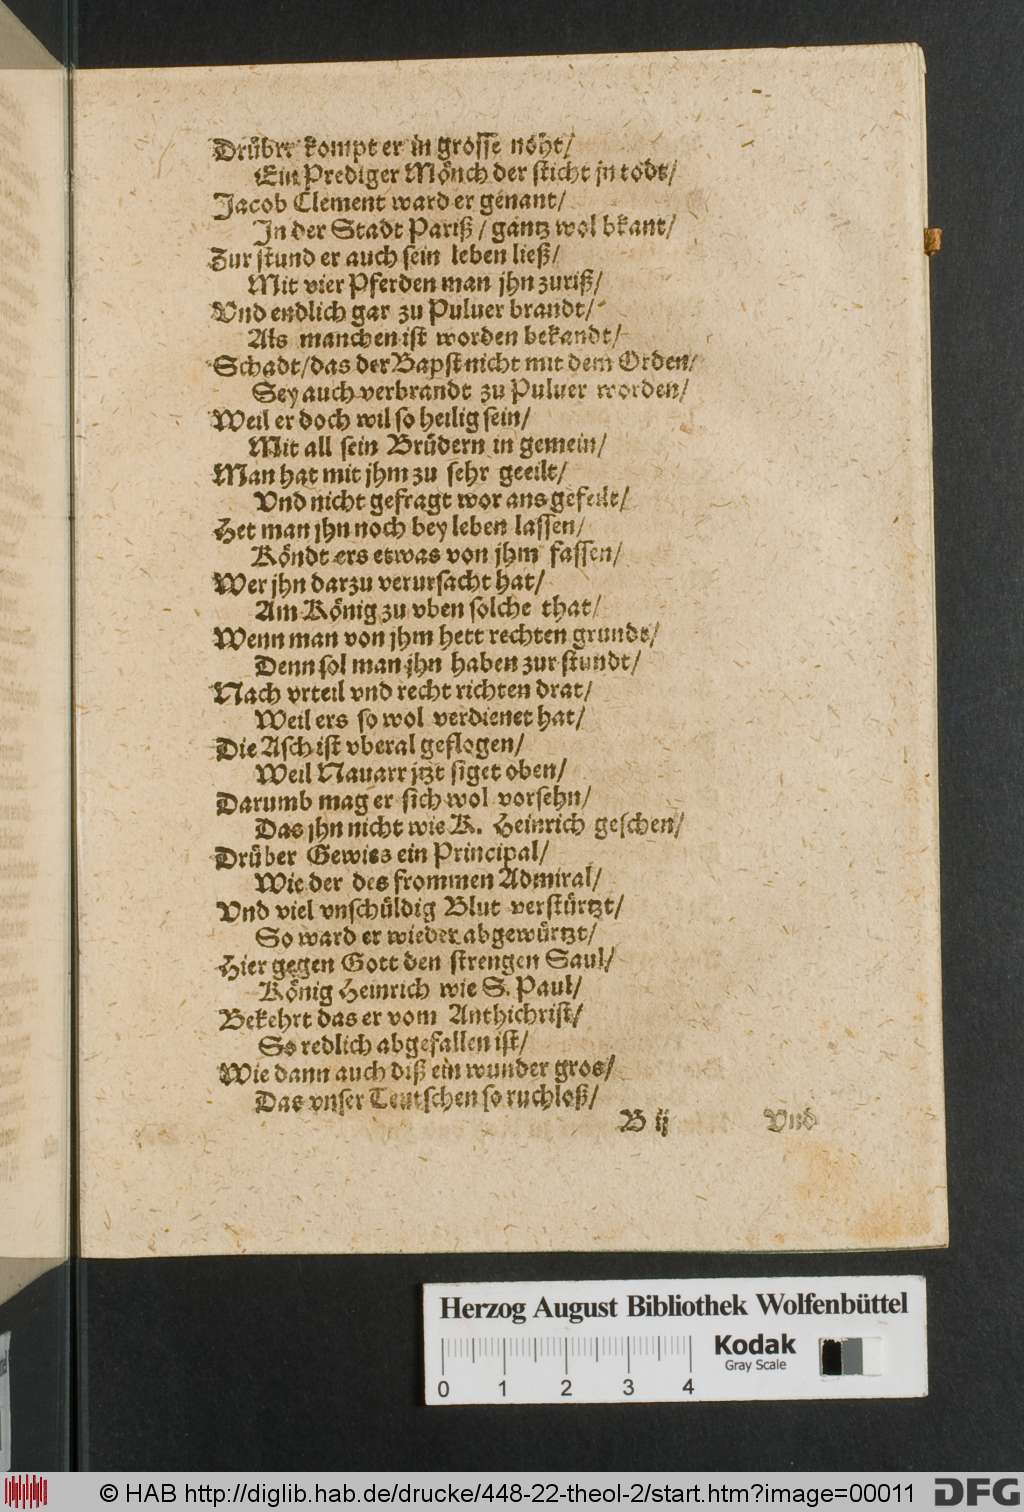 Drüber kompt er in grosse nöht/
Ein Prediger Mönch der sticht jn todt/
Jacob Clement ward er genant/
In der Stadt Pariß / gantz wol bkant/
Zur stund er auch sein leben ließ/
Mit vier Pferden man jhn zuriß/
Vnd endlich gar zu Puluer brandt/
Als manchen ist worden bekandt/
Schadt/das der Bapst nicht mit dem Orden/
Sey auch verbrandt zu Puluer worden/
Weil er doch wil so heilig sein/
Mit all sein Brüdern in gemein/
Man hat mit jhm zu sehr geeilt/
Vnd nicht gefragt wor ans gefeilt/
Het man jhn noch bey leben lassen/
Köndt ers etwas von jhm fassen/
Wer jhn darzu verursacht hat/
Am König zu vben solche that/
Wenn man von jhm hett rechten grundt/
Denn sol man jhn haben zur stundt/
Nach vrteil vnd recht richten drat/
Weil ers so wol verdienet hat/
Die Asch ist vberal geflogen/
Weil Nauarr jtzt siget oben/
Darumb mag er sich wol vorsehn/
Das jhn nicht wie K. Heinrich geschen/
Drüber Gewiss ein Principal/
Wie der des frommen Admiral/
Vnd viel vnschüldig Blut verstürtzt/
So ward er wieder abgewürtzt/
Hier gegen Gott den strengen Saul/
König Heinrich wie S. Paul/
Bekehrt das er vom Anthichrist/
So redlich abgefallen ist/
Wie dann auch diß ein wunder gros/
Das vnser Teutschen so ruchloß/
B ij Vnd
Herzog August Bibliothek Wolfenbüttel
0 1 2 3 4
Kodak
Gray Scale
© HAB http://diglib.hab.de/drucke/448-22-theol-2/start.htm?image=00011
DFG